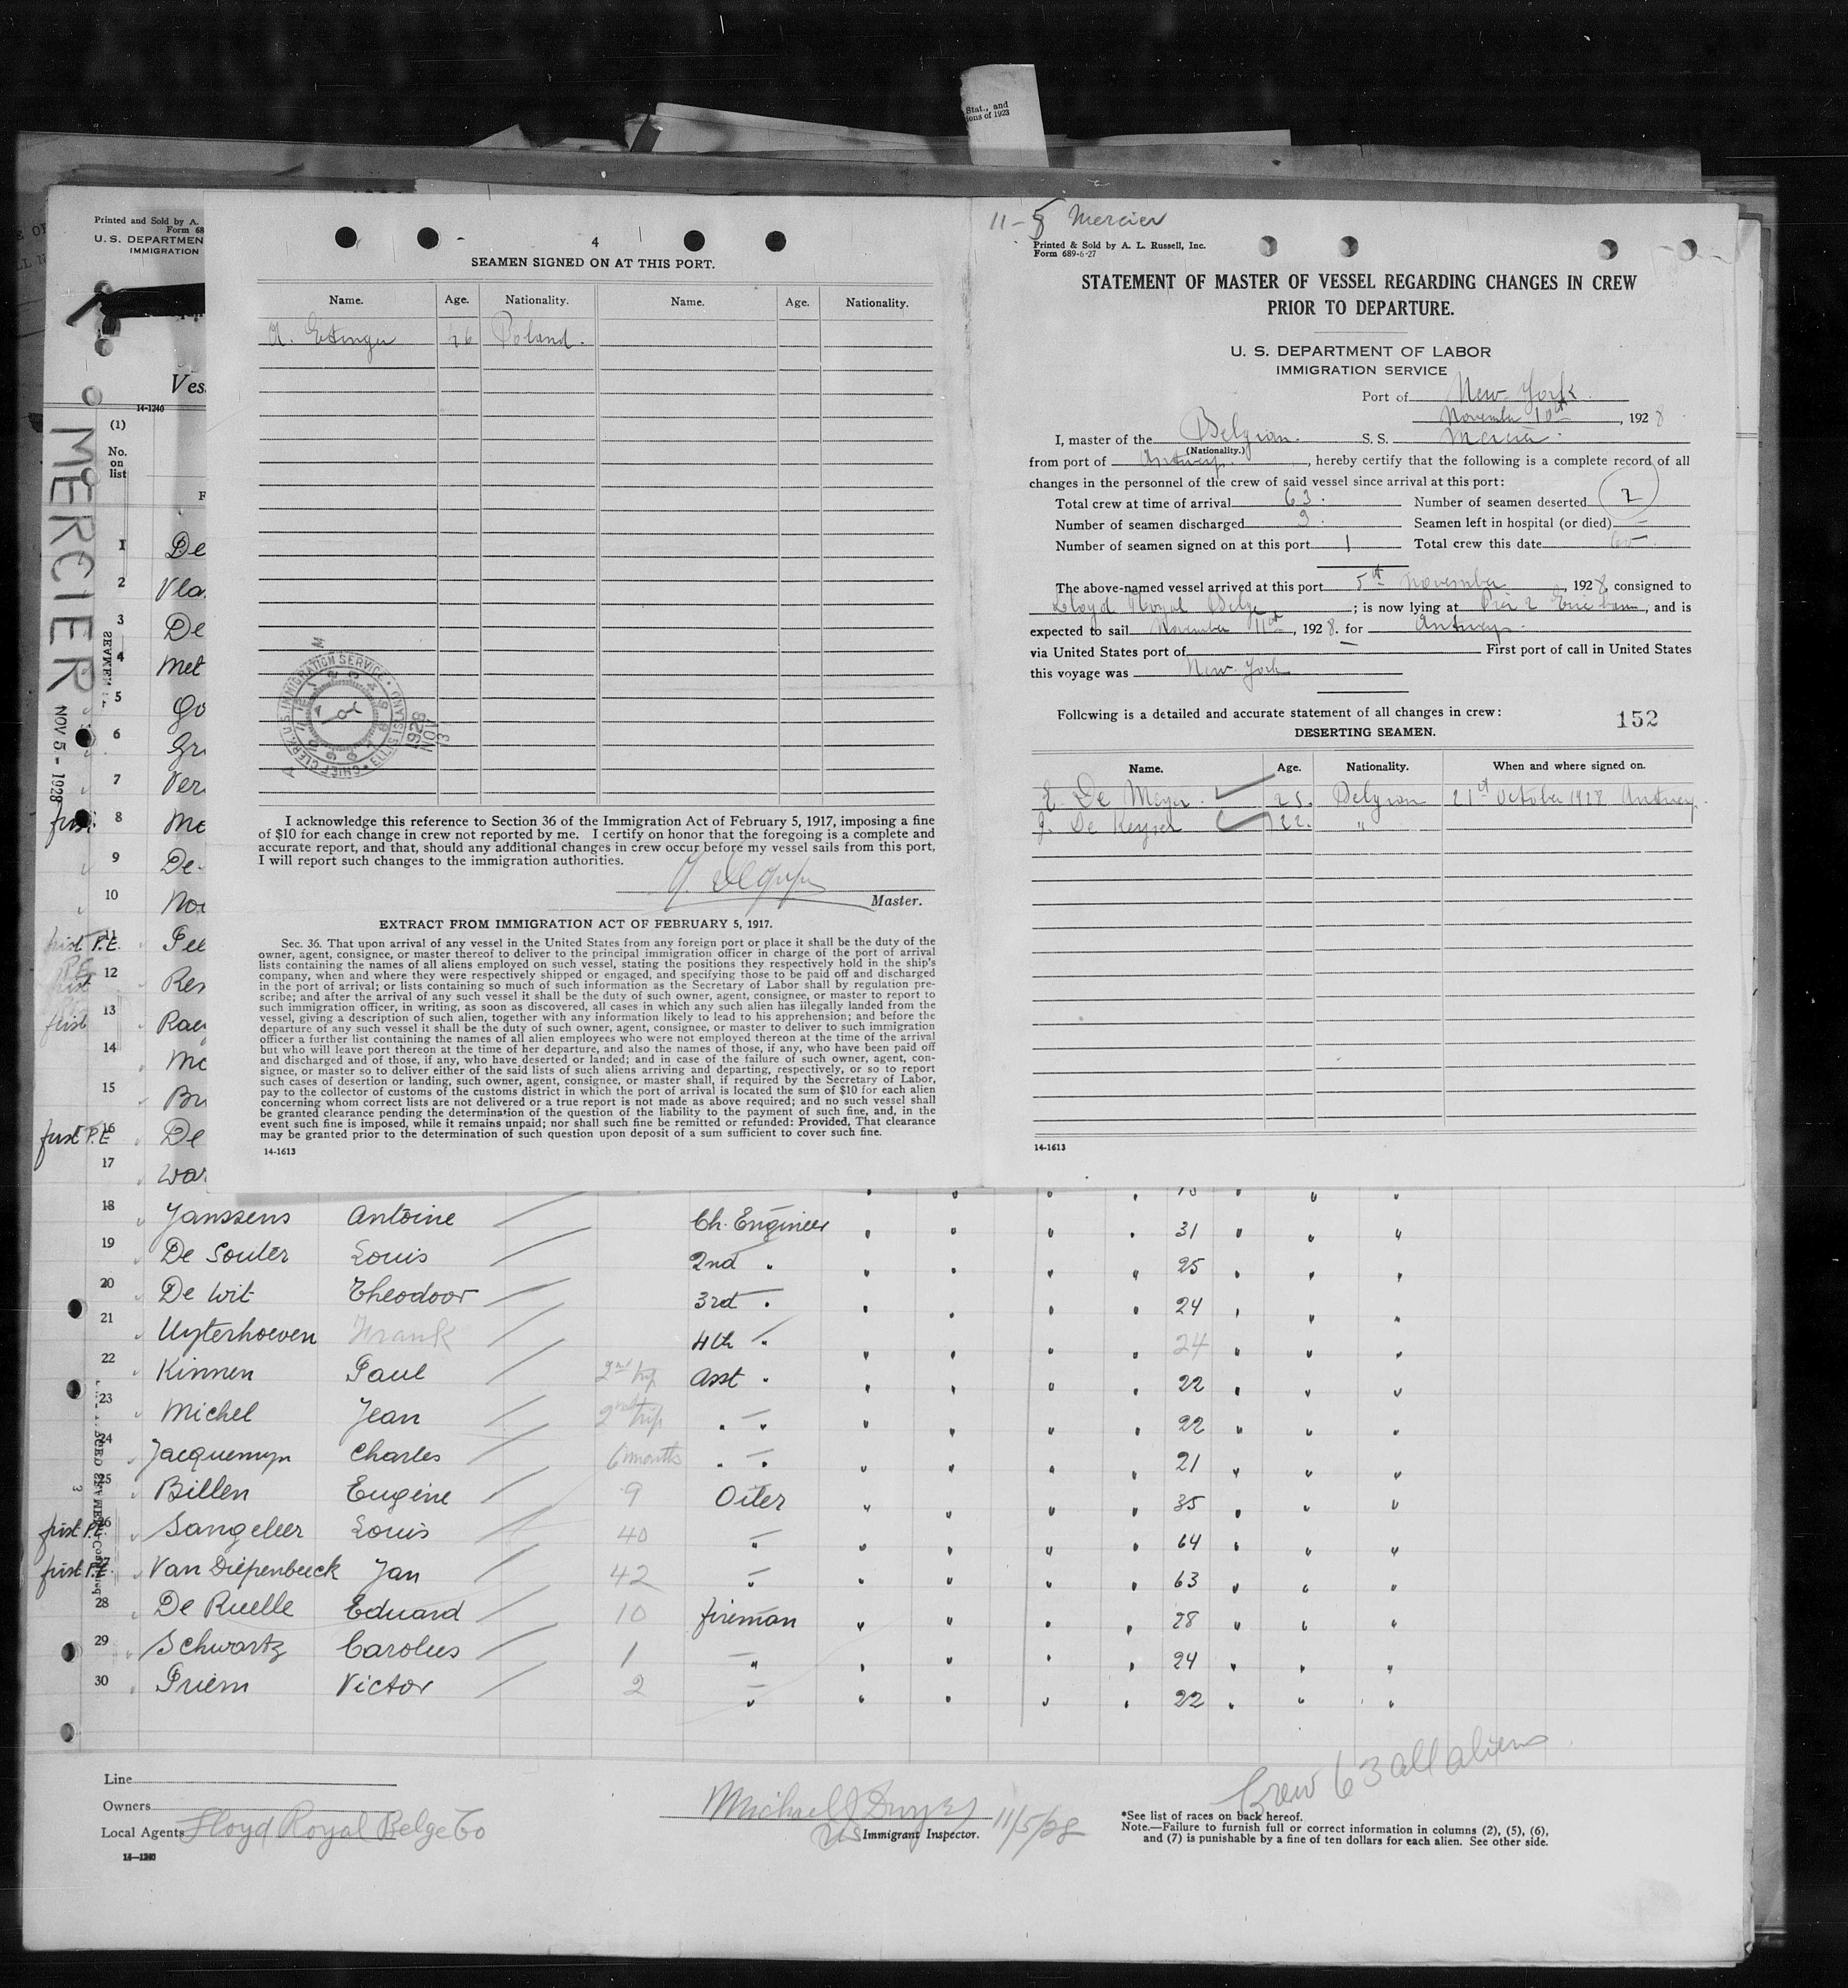 Stat., and
ions of 1923
Printed and Sold by A.
Form 68
U. S. DEPARTMEN
IMMIGRATION
Ves
14-1240
(1)
No.
on
list
F
MERCIER
NOV 5 - 1928
1 De
2 Vla
3 De
4 Met
5 Go
6 Gr
7 Ver
first 8 Mc
9 De
10 Noe
first P.E. 11 Pee
P.E. first 12 Res
first 13 Rae
14 Mc
15 Br
first P.E. 16 De
17 War
4
SEAMEN SIGNED ON AT THIS PORT.
Name. Age. Nationality. Name. Age. Nationality.
A. Ettinger 46 Poland.
CHIEF CLERK, U.S. IMMIGRATION SERVICE, ELLIS ISLAND
1928 NOV 13
I acknowledge this reference to Section 36 of the Immigration Act of February 5, 1917, imposing a fine
of $10 for each change in crew not reported by me. I certify on honor that the foregoing is a complete and
accurate report, and that, should any additional changes in crew occur before my vessel sails from this port,
I will report such changes to the immigration authorities.
Master.
EXTRACT FROM IMMIGRATION ACT OF FEBRUARY 5, 1917.
Sec. 36. That upon arrival of any vessel in the United States from any foreign port or place it shall be the duty of the
owner, agent, consignee, or master thereof to deliver to the principal immigration officer in charge of the port of arrival
lists containing the names of all aliens employed on such vessel, stating the positions they respectively hold in the ship's
company, when and where they were respectively shipped or engaged, and specifying those to be paid off and discharged
in the port of arrival; or lists containing so much of such information as the Secretary of Labor shall by regulation pre-
scribe; and after the arrival of any such vessel it shall be the duty of such owner, agent, consignee, or master to report to
such immigration officer, in writing, as soon as discovered, all cases in which any such alien has illegally landed from the
vessel, giving a description of such alien, together with any information likely to lead to his apprehension; and before the
departure of any such vessel it shall be the duty of such owner, agent, consignee, or master to deliver to such immigration
officer a further list containing the names of all alien employees who were not employed thereon at the time of the arrival
but who will leave port thereon at the time of her departure, and also the names of those, if any, who have been paid off
and discharged and of those, if any, who have deserted or landed; and in case of the failure of such owner, agent, con-
signee, or master so to deliver either of the said lists of such aliens arriving and departing, respectively, or so to report
such cases of desertion or landing, such owner, agent, consignee, or master shall, if required by the Secretary of Labor,
pay to the collector of customs of the customs district in which the port of arrival is located the sum of $10 for each alien
concerning whom correct lists are not delivered or a true report is not made as above required; and no such vessel shall
be granted clearance pending the determination of the question of the liability to the payment of such fine, and, in the
event such fine is imposed, while it remains unpaid; nor shall such fine be remitted or refunded: Provided, That clearance
may be granted prior to the determination of such question upon deposit of a sum sufficient to cover such fine.
14-1613
11-5 Mercier
Printed & Sold by A. L. Russell, Inc.
Form 689-6-27
STATEMENT OF MASTER OF VESSEL REGARDING CHANGES IN CREW
PRIOR TO DEPARTURE.
U. S. DEPARTMENT OF LABOR
IMMIGRATION SERVICE
Port of New York
November 10th, 1928
I, master of the Belgian. S. S. Mercier.
(Nationality.)
from port of Antwerp, hereby certify that the following is a complete record of all
changes in the personnel of the crew of said vessel since arrival at this port:
Total crew at time of arrival 63. Number of seamen deserted 2
Number of seamen discharged Seamen left in hospital (or died) —
Number of seamen signed on at this port 1 Total crew this date
The above-named vessel arrived at this port 5th November, 1928, consigned to
Lloyd Royal Belge; is now lying at Pier 2 Erie, and is
expected to sail November 11th, 1928. for Antwerp.
via United States port of — First port of call in United States
this voyage was New York
Following is a detailed and accurate statement of all changes in crew:
152
DESERTING SEAMEN.
Name. Age. Nationality. When and where signed on.
E. De Meyer. 25. Belgian 21st October 1928 Antwerp.
J. De Keyser 22. "
14-1613
18 Janssens Antoine Ch. Engineer 31
19 De Souter Louis 2nd " 25
20 De Wit Theodoor 3rd " 24
21 Uyterhoeven Frank 4th " 24
22 Kinnen Paul 2nd trip Asst " 22
23 Michel Jean 2nd trip " " 22
24 Jacquemyn Charles 6 months " " 21
25 Billen Eugène 9 Oiler 35
first P.E. 26 Sangeleer Louis 40 " 64
first P.E. 27 Van Diepenbeeck Jan 42 " 63
28 De Ruelle Eduard 10 fireman 28
29 Schwartz Carolus 1 " 24
30 Priem Victor 2 " 22
Crew 63 all aliens
Line
Owners
Local Agents Lloyd Royal Belge Co
14-1240
Michael J Dwyer
US Immigrant Inspector. 11/5/28
*See list of races on back hereof.
Note.—Failure to furnish full or correct information in columns (2), (5), (6),
and (7) is punishable by a fine of ten dollars for each alien. See other side.